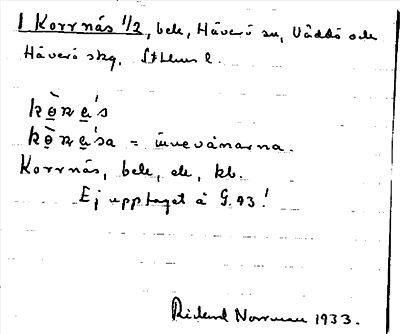 1 Korrnäs 1/2, bele, Häverö sn, Väddö och
Häverö skg, Sthlms l.
kò̱ʀa̱´s
kò̱ʀa̱´sa = invånarna.
Korrnäs, bele, ek, kb.
Ej upptaget å G. 93!
Rickard Norrman 1933.